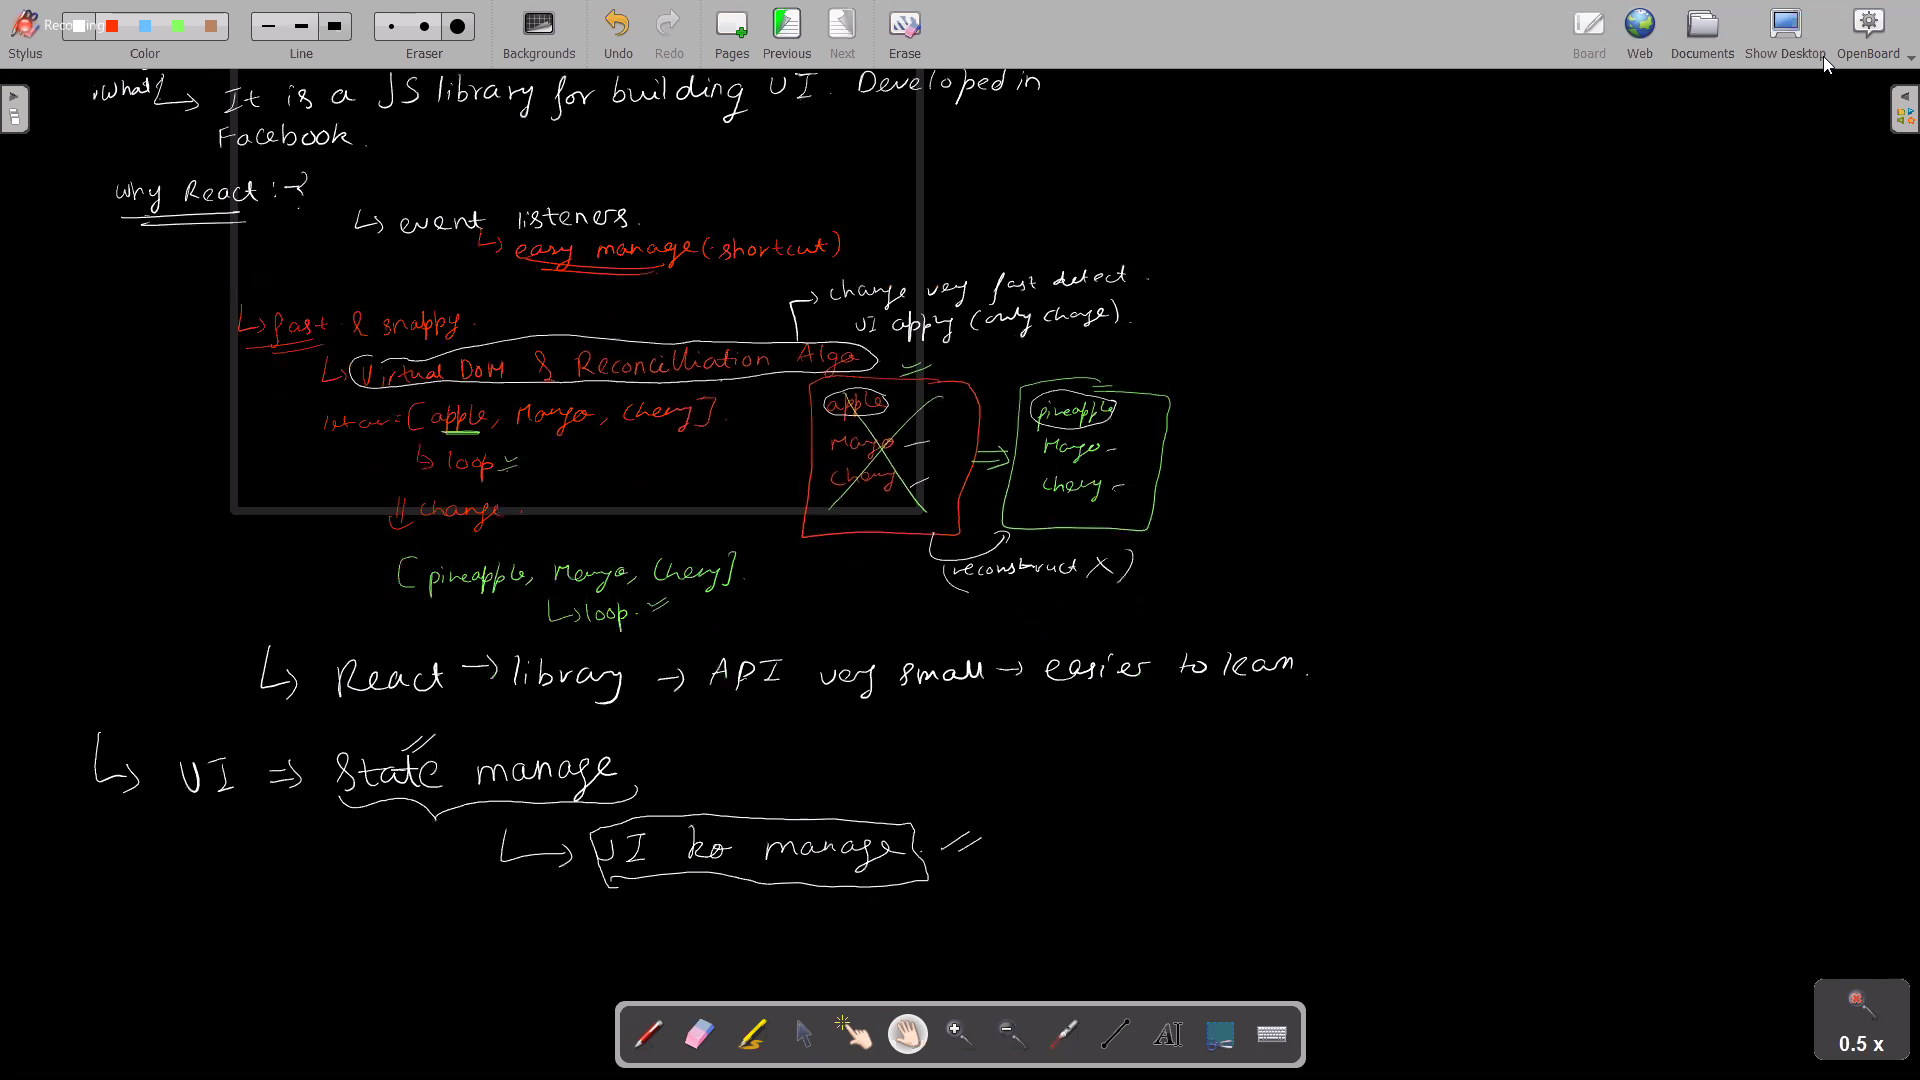 Recording
Stylus
Color
Line
Eraser
Backgrounds
Undo
Redo
Pages
Previous
Next
Erase
Board
Web
Documents
Show Desktop
OpenBoard
What
It is a JS library for building UI. Developed in
Facebook.
Why React :-?
event listeners.
easy manage (shortcut)
change very fast detect.
UI apply (only change).
fast & snappy.
Virtual DOM & Reconcilliation Algo
let arr = [apple, Mango, Cherry].
loop
change.
[pineapple, Mango, Cherry].
loop.
apple
Mango
Cherry
pineapple
Mango
Cherry
(reconstruct X)
React → library → API very small → easier to learn.
UI ⇒ State manage
UI ko manage.
0.5 x